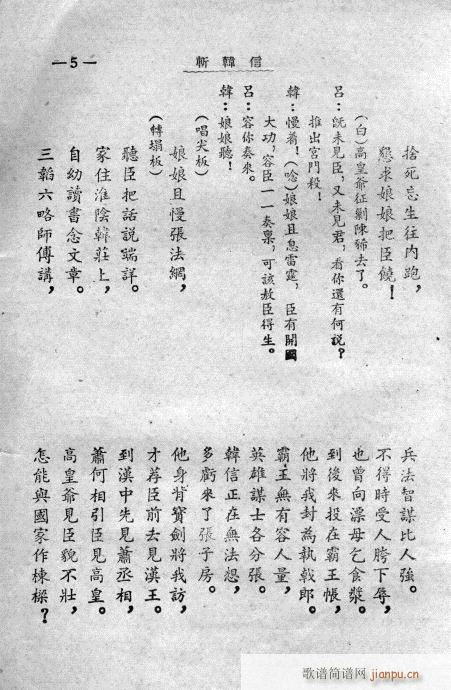 斬韓信
—5—
捨死忘生往內跑，
懇求娘娘把臣饒！
（白）高皇爺征剿陳豨去了。
呂：既未見臣，又未見君，看你還有何說？
推出宮門殺！
韓：慢着！（唸）娘娘且息雷霆，臣有開國
大功，容臣一一奏稟，可該赦臣得生。
呂：容你奏來。
韓：娘娘聽！
（唱尖板）
娘娘且慢張法網，
（轉塌板）
聽臣把話說端詳。
家住淮陰韓莊上，
自幼讀書念文章。
三韜六略師傅講，
兵法智謀比人強。
不得時受人胯下辱，
也曾向漂母乞食漿。
到後來投在霸王帳，
他將我封為執戟郎。
霸王無有容人量，
英雄謀士各分張。
韓信正在無法想，
多虧來了張子房。
他身背寶劍將我訪，
才荐臣前去見漢王。
到漢中先見蕭丞相，
蕭何相引臣見高皇。
高皇爺見臣貌不壯，
怎能與國家作棟樑？
歌谱简谱网
jianpu.cn